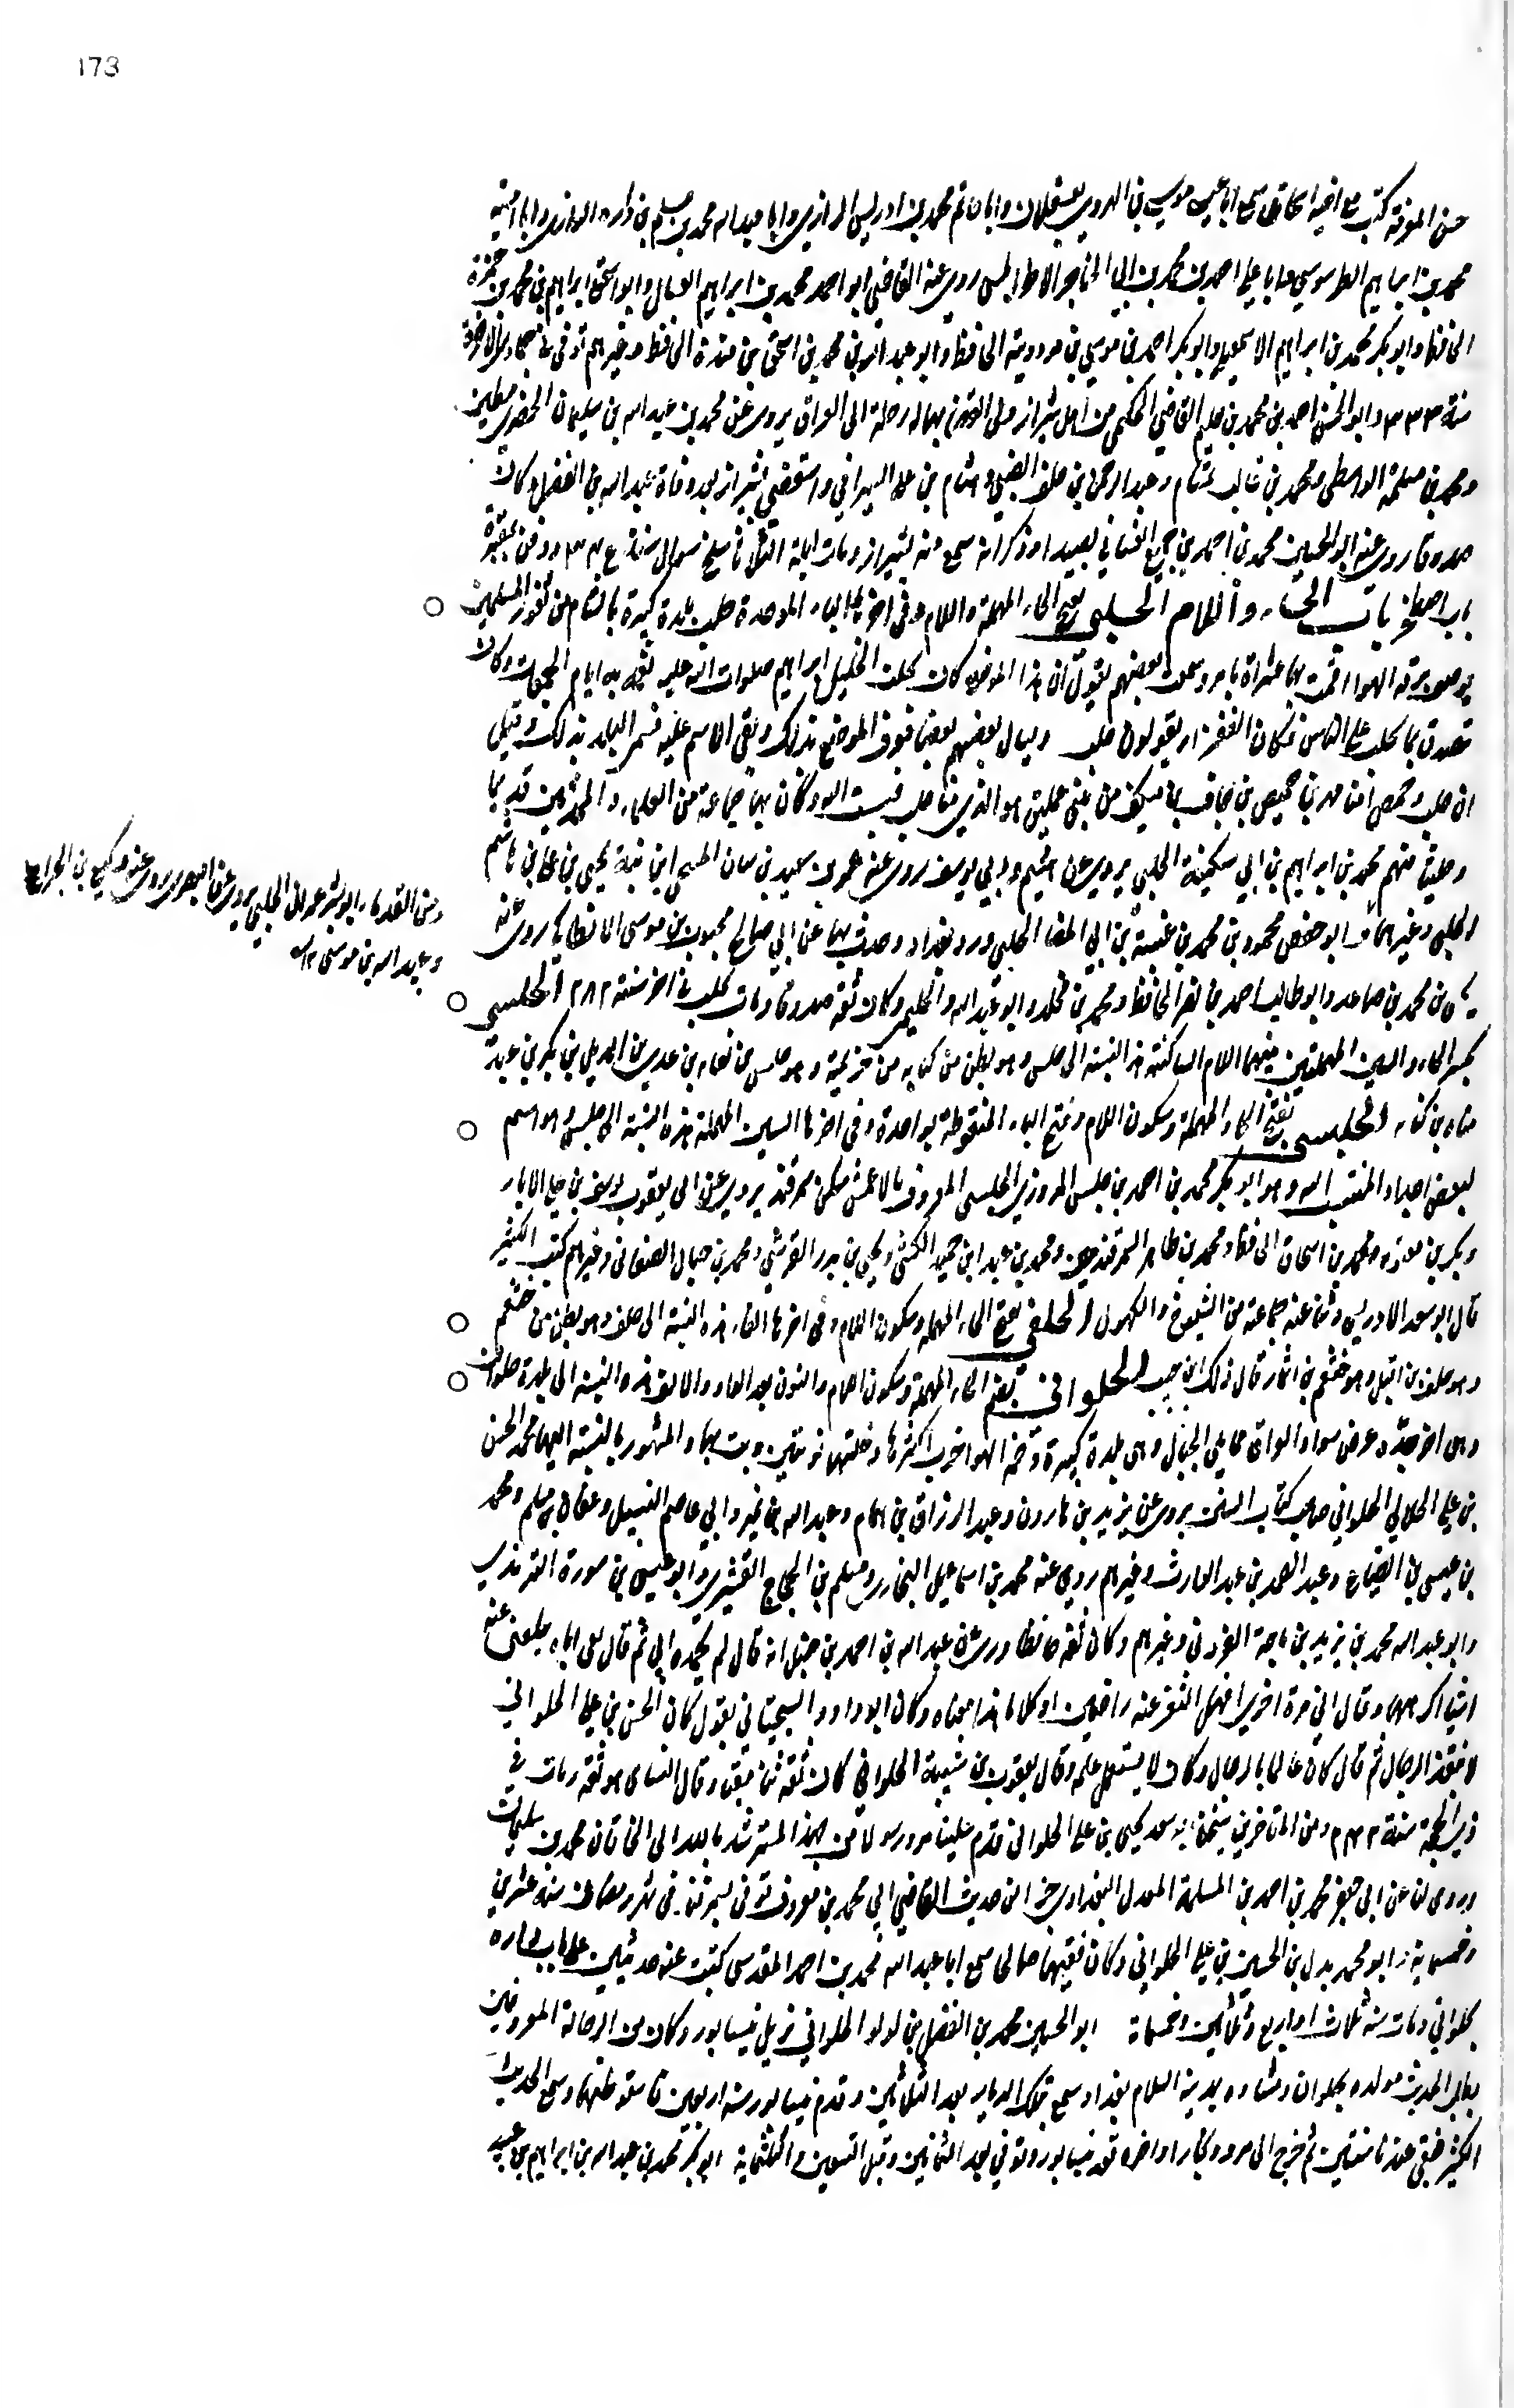 173
حسن المعرفة كتب مع اخيه اسحاق سمع ابا عيسى موسى بن الهروي بعسقلان وابا حاتم محمد بن ادريس الرازي وابا عبد الله محمد بن مسلم بن واره الرازي وابا امية
محمد بن ابراهيم الطرسوسي وابا علي احمد بن محمد بن ابي الخناجر الاطرابلسي روى عنه القاضي ابو احمد محمد بن ابراهيم العسال وابو اسحق ابراهيم بن محمد بن حمزة
الحافظ وابو بكر محمد بن ابراهيم الاسمعيلي وابو بكر احمد بن موسى بن مردويه الحافظ وابو عبد الله بن محمد بن اسحق بن مندة الحافظ وغيرهم توفي في جمادى الاخرة
سنة ٣٣٣ وابو الحسن احمد بن محمد بن حليم القاضي الحكمي من اهل شيراز ولي القضاء بها له رحلة الى العراق يروي عن محمد بن عبد الله بن سليمان الحضرمي مطين
ومحمد بن مسلمة الواسطي ومحمد بن غالب تمتام وعبد الرحمن بن خلف الضبي وهشام بن علي السيرافي واستقضي بشيراز بعد وفاة عبد الله بن الفضل وكان
صدوقا روى عنه ابو الحسين محمد بن احمد بن جميع الغساني بصيدا وذكر انه سمع منه بشيراز ومات ليلة الثلاثا سلخ شوال سنة ٣٤٠ ودفن بمقبرة
باب اصطخر باب الحاء واللام الحلبي بفتح الحاء المهملة واللام وفي اخرها الباء الموحدة حلب بلدة كبيرة بالشام من ثغور المسلمين
يوصف برقة الهوا اقمت بها عشرة ايام وسمعت بعضهم يقول ان هذا الموضع كان يحلب الخليل ابراهيم صلوات الله عليه غنمه به ايام الجمعات وكان
تصدق بما يحلب على الناس فكان الفقرا يقولون حلب ويسال بعضهم بعضا فعرف الموضع بذلك وبقي الاسم عليه فسمي البلد بذلك وقيل
ان حلب وحمص ابنا مهر بن حيص بن حاف بن مكنف من بني عمليق هو الذي بنا حلب فنسبت اليه وكان بها جماعة من العلماء والمحدثين قديما
وحديثا منهم محمد بن ابراهيم بن ابي سكينة الحلبي يروي عن هشيم وابي يوسف روى عنه عمر بن سعيد بن سنان المنبجي ابن بنته يحيى بن علي بن هاشم
الحلبي وغيرهما وابو حفص محمود بن محمد بن عنبسة بن ابي المضا الحلبي ورد بغداد وحدث بها عن ابي صالح محبوب بن موسى الانطاكي روى عنه
يحيى بن محمد بن صاعد وابو طالب احمد بن نصر الحافظ ومحمد بن مخلد وابو عبد الله الحكيمي وكان ثقة صدوقا ومات بحلب في اخر سنة ٢٨٢ الحلسي
بكسر الحاء والسين المهملتين بينهما اللام الساكنة هذه النسبة الى حلس وهو بطن من كنانه من خزيمة وهو حلس بن نفاثه بن عدي بن الديل بن بكر بن عبد
مناه بن كنانه الحلبسي بفتح الحاء المهملة وسكون اللام وفتح الباء المنقوطة بواحدة وفي اخرها السين المهملة هذه النسبة الى حلبس وهو اسم
لبعض اجداد المنتسب اليه وهو ابو بكر محمد بن احمد بن حلبس المروزي الحلبسي المعروف بالاعمش سكن سمرقند يروي عن ابي يعقوب يوسف بن علي الابار
وبكر بن معوذه ومحمد بن اسحاق الحافظ ومحمد بن طاهر السمرقنديين ومحمد بن عبد ابن حميد الكشي ويحيى بن بدر القرشي ومحمد بن حبال الصغاني وغيرهم كتب الكثير
قال ابو سعد الادريسي وثنا عنه جماعة من الشيوخ والكهول الحلفي بفتح الحاء المهملة وسكون اللام وفي اخرها الفاء هذه النسبة الى حلف وهو بطن من خثعم
وهو حلف بن افتل وهو خثعم بن انمار قال ذلك ابن حبيب الحلواني بضم الحاء المهملة وسكون اللام والنون بعد الواو والالف هذه النسبة الى بلدة حلوان
وهي اخر حد عرض سواد العراق مما يلي الجبال وهي بلدة كبيرة وخمة الهوا خرب اكثرها دخلتها نوبتين وبت بها والمشهور بالنسبة اليها محمد الحسن
بن علي الخلال الحلواني صاحب كتاب السنن يروي عن يزيد بن هارون وعبد الرزاق بن همام وعبد الله بن نمير وابي عاصم النبيل وعفان بن مسلم ومحمد
بن عيسى بن الطباع وعبد الصمد بن عبد الوارث وغيرهم روى عنه محمد بن اسماعيل البخاري ومسلم بن الحجاج القشيري وابو عيسى بن سورة الترمذي
وابو عبد الله محمد بن يزيد بن ماجة القزويني وغيرهم وكان ثقة حافظا وروي عن عبد الله بن احمد بن حنبل انه قال لم يحمده ابي ثم قال يعني اباه بلغني عنه
اشيا اكرهها وقال ابي مرة اخرى اهل الثغر عنه راضين او كلاما هذا معناه وكان ابو داود السجستاني يقول كان الحسن بن علي الحلواني
لا ينتقد الرجال ثم قال كان عالما بالرجال وكان لا يستعمل علمه وقال يعقوب بن شيبة الحلواني كان ثقة ثبتا متقنا وقال النسائي هو ثقة ومات في
ذي الحجة سنة ٢٤٢ ومن المتاخرين شيخنا ابو سعد يحيى بن علي الحلواني قدم علينا مرو رسولا من جهة المسترشد بالله الى الخاقان محمد بن سليمان
وروى لنا عن ابي جعفر محمد بن احمد بن المسلمة المعدل البغدادي جزا من حديث القاضي ابي محمد بن معروف توفي بسمرقند في شهر رمضان سنة عشرين
وخمسمايه وابو محمد بدل بن الحسين بن علي الحلواني وكان فقيها صالحا سمع ابا عبد الله محمد بن احمد المقدسي كتبت عنه حديثين على باب داره
بحلوان ومات سنة ثلاث او اربع وثلاثين وخمسماة ابو الحسين محمد بن الفضل بن لولو الحلواني نزيل نيسابور وكان من الرحالة المعروفين
بطلب الحديث مولده بحلوان ومنشاه بمدينة السلام بغداد سمع بتلك الديار بعد الثلاثين وقدم نيسابور سنة اربعين فاستوطنها وسمع الحديث
الكثير فبقي عندنا سنتين ثم خرج الى مرو وبخارا واخره بعد نيسابور وتوفي بعد الثمانين وقبل التسعين والثلثماية ابو بكر محمد بن عبد الله بن ابراهيم بن عبيد
ومن القدماء ابو بشر الحلبي يروي عن الحسن البصري روى عنه وكيع بن الجراح
وعبيد الله بن موسى